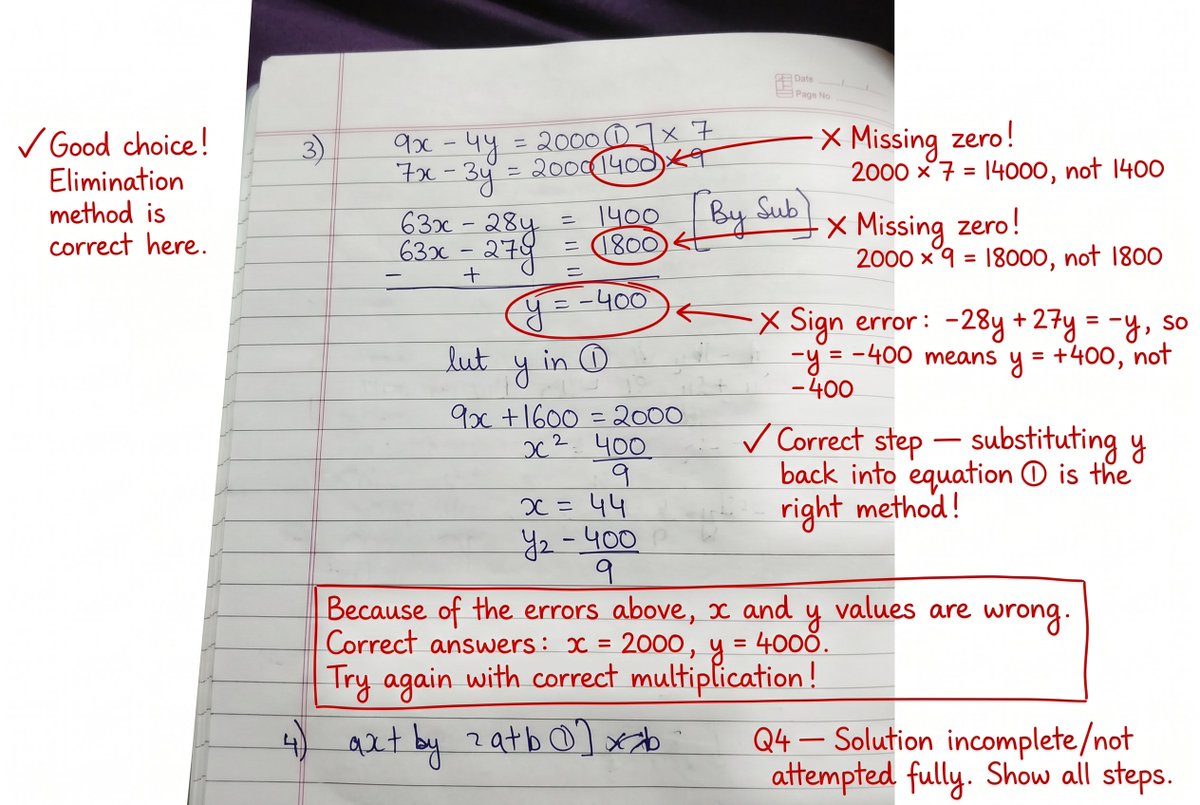 Date / /
Page No.
✓ Good choice!
Elimination
method is
correct here.
3) 9x - 4y = 2000 ① ] × 7
7x - 3y = 2000 1400 × 9
✗ Missing zero!
2000 × 7 = 14000, not 1400
63x - 28y = 1400 [By Sub]
63x - 27y = 1800
- + =
✗ Missing zero!
2000 × 9 = 18000, not 1800
y = -400
✗ Sign error: -28y + 27y = -y, so
-y = -400 means y = +400, not
-400
lut y in ①
9x + 1600 = 2000
x² 400
9
✓ Correct step — substituting y
back into equation ① is the
right method!
x = 44
y₂ - 400
9
Because of the errors above, x and y values are wrong.
Correct answers: x = 2000, y = 4000.
Try again with correct multiplication!
4) ax + by 2 a+b ① ] × b
Q4 — Solution incomplete/not
attempted fully. Show all steps.